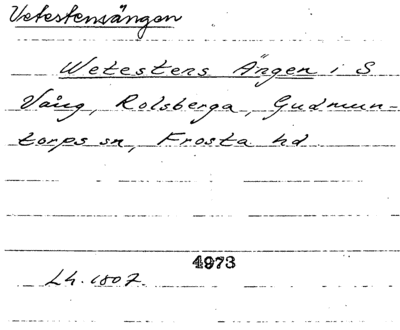 Vetestensängen
Wetestens Ängen i S
Vång, Rolsberga, Gudmun-
torps sn, Frosta hd
4973
Lh. 1807.